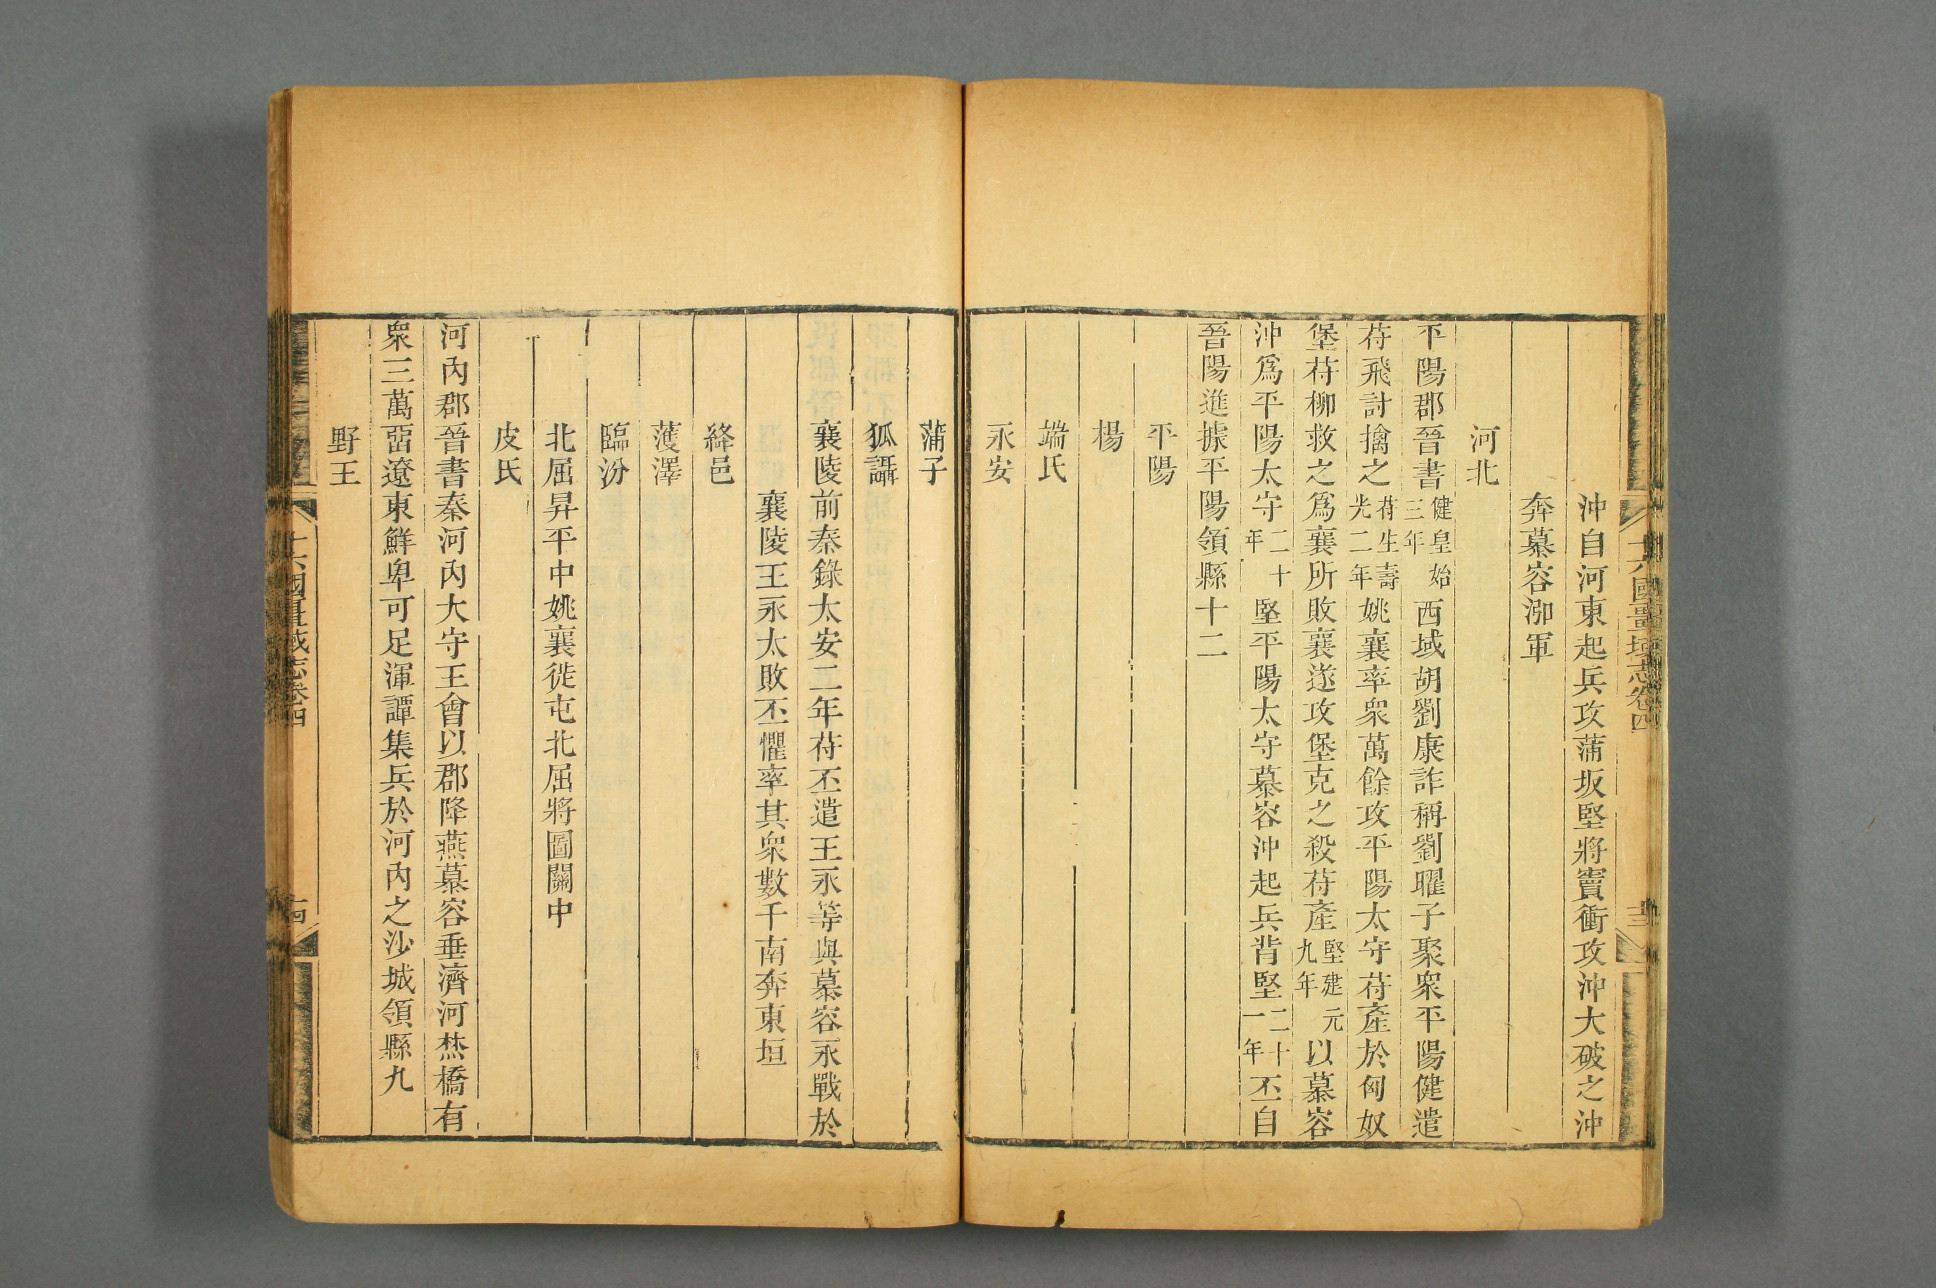 沖自河東起兵攻蒲坂堅將竇衝攻沖大破之沖
奔慕容泓軍
河北
平陽郡晉書健皇始三年西域胡劉康詐稱劉曜子聚衆平陽健遣
苻飛討擒之苻生壽光二年姚襄率衆萬餘攻平陽太守苻產於匈奴
堡苻柳救之爲襄所敗襄遂攻堡克之殺苻產堅建元九年以慕容
沖爲平陽太守二十年堅平陽太守慕容沖起兵背堅二十一年丕自
晉陽進據平陽領縣十二
平陽
楊
端氏
永安
蒲子
狐讘
襄陵前秦錄太安二年苻丕遣王永等與慕容永戰於
襄陵王永大敗丕懼率其衆數千南奔東垣
絳邑
濩澤
臨汾
北屈昇平中姚襄徙屯北屈將圖關中
皮氏
河內郡晉書秦河內太守王會以郡降燕慕容垂濟河焚橋有
衆三萬留遼東鮮卑可足渾譚集兵於河內之沙城領縣九
野王
十六國疆域志卷四
十六國疆域志卷四